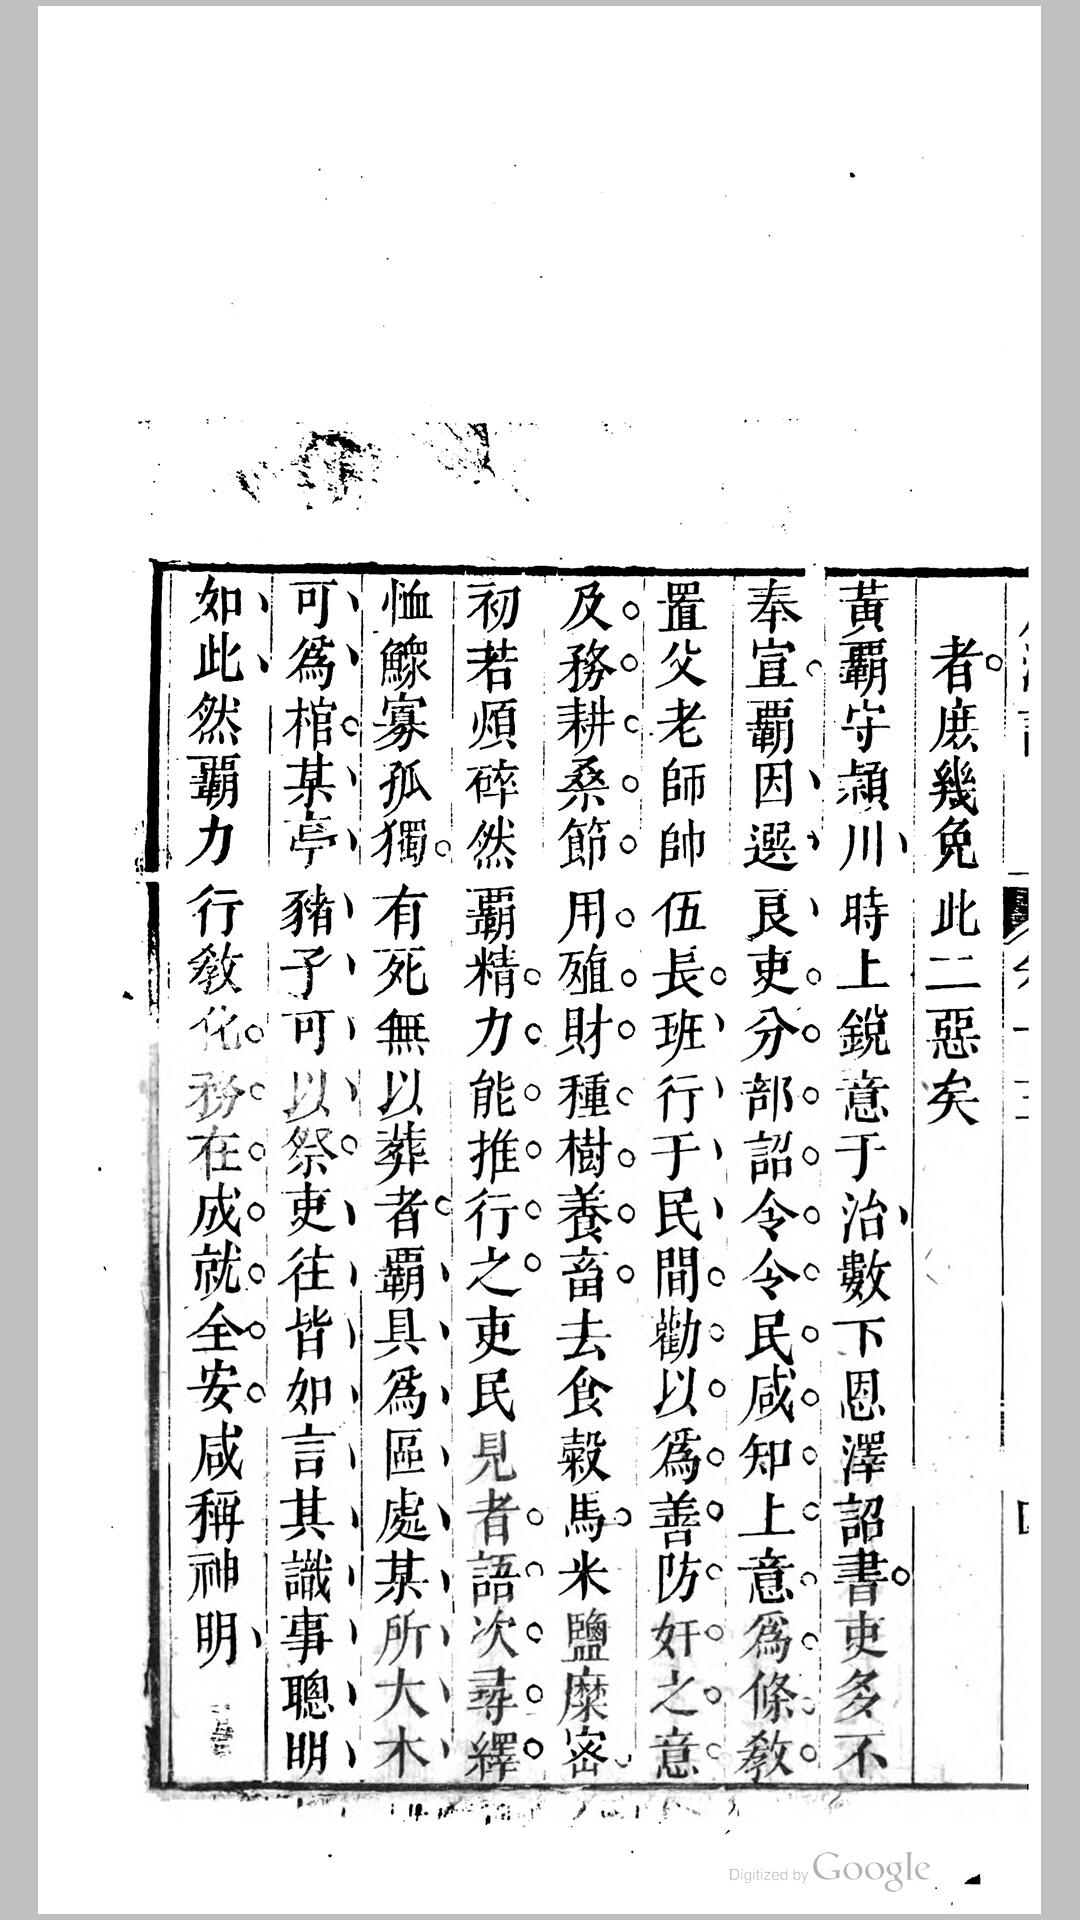 者庶幾免此二惡矣
黃霸守潁川時上銳意于治數下恩澤詔書吏多不
奉宣霸因選良吏分部詔令令民咸知上意為條教
置父老師帥伍長班行于民間勸以為善防奸之意
及務耕桑節用殖財種樹養畜去食穀馬米鹽糜密
初若煩碎然霸精力能推行之吏民見者語次尋繹
恤鰥寡孤獨有死無以葬者霸具為區處某所大木
可為棺某亭豬子可以祭吏往皆如言其識事聰明
如此然霸力行教化務在成就全安咸稱神明
Digitized by Google